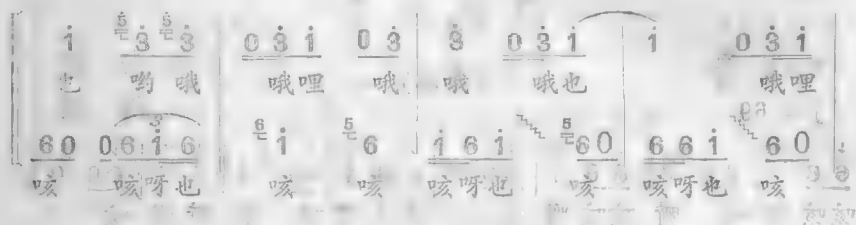 i 5 3 5 3 0 3 i 0 3 3 0 3 i i 0 3 i
也 哟 哦 哦哩 哦 哦 哦也 哦哩
6 0 0 6 i 6 6 i 5 6 i 6 i 5 6 0 6 6 i 6 0
咳 咳呀也 咳 咳 咳呀也 咳 咳呀也 咳